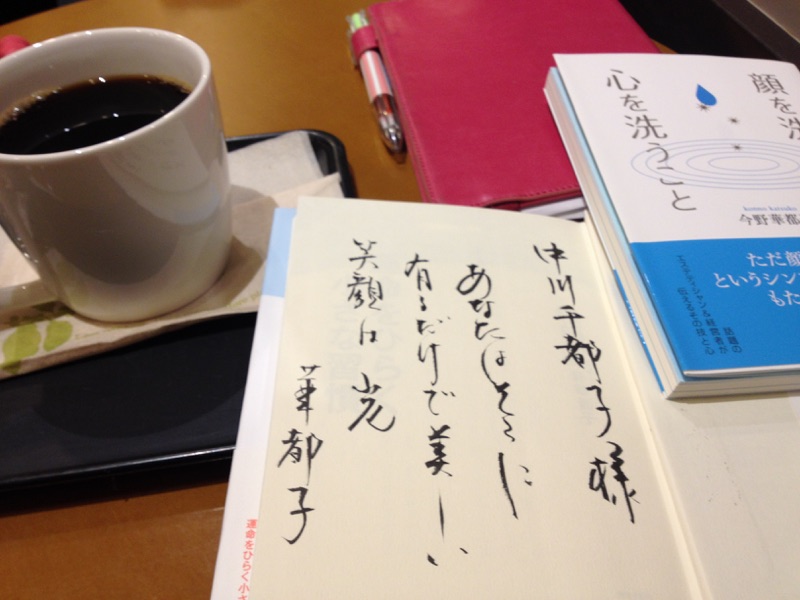 中川千都子様
あなたはそこに
有るだけで美しい
笑顔は光
華都子
顔を洗
心を洗うこと
今野華都
ただ顔
というシン
もた
話題の
エステティシャン&経営者が
伝えるその技と心
運命をひらく小さ